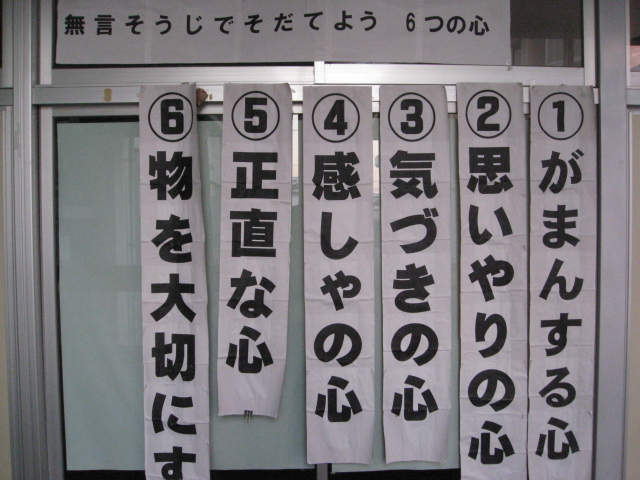 無言そうじでそだてよう 6つの心
①がまんする心
②思いやりの心
③気づきの心
④感しゃの心
⑤正直な心
⑥物を大切にす